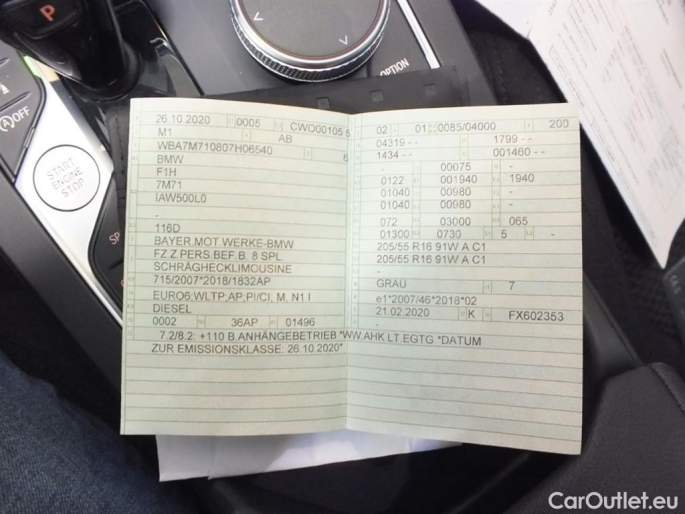 P
OPTION
OFF
START
ENGINE
STOP
SP
26.10.2020 0005 CWD00105 5
M1 AB
WBA7M710807H06540 6
BMW
F1H
7M71
IAW500L0
-
116D
BAYER.MOT.WERKE-BMW
FZ.Z.PERS.BEF.B. 8 SPL.
SCHRÄGHECKLIMOUSINE
715/2007*2018/1832AP
EURO6;WLTP;AP;PI/CI, M, N1 I
DIESEL
0002 36AP 01496
7.2/8.2: +110 B.ANHÄNGEBETRIEB *WW.AHK LT.EGTG *DATUM
ZUR EMISSIONSKLASSE: 26.10.2020*
02 01 0085/04000 200
04319 - - 1799 - -
1434 - - 001460 - -
- 00075 -
0122 001940 1940
01040 00980 -
01040 00980 -
072 03000 065
01300 0730 5 -
205/55 R16 91W A C1
205/55 R16 91W A C1
-
GRAU 7
e1*2007/46*2018*02
21.02.2020 K FX602353
CarOutlet.eu